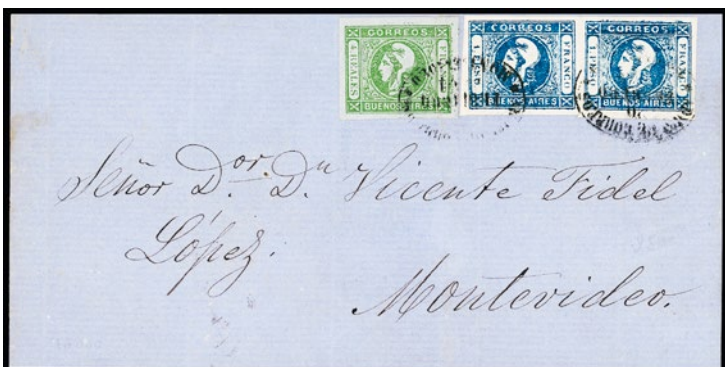 CORREOS
4 REALES
FRANCO
BUENOS AIRES
CORREOS
1 PESO
FRANCO
BUENOS AIRES
CORREOS
1 PESO
FRANCO
BUENOS AIRES
Señor Dor. Dn Vicente Fidel
López.
Montevideo.